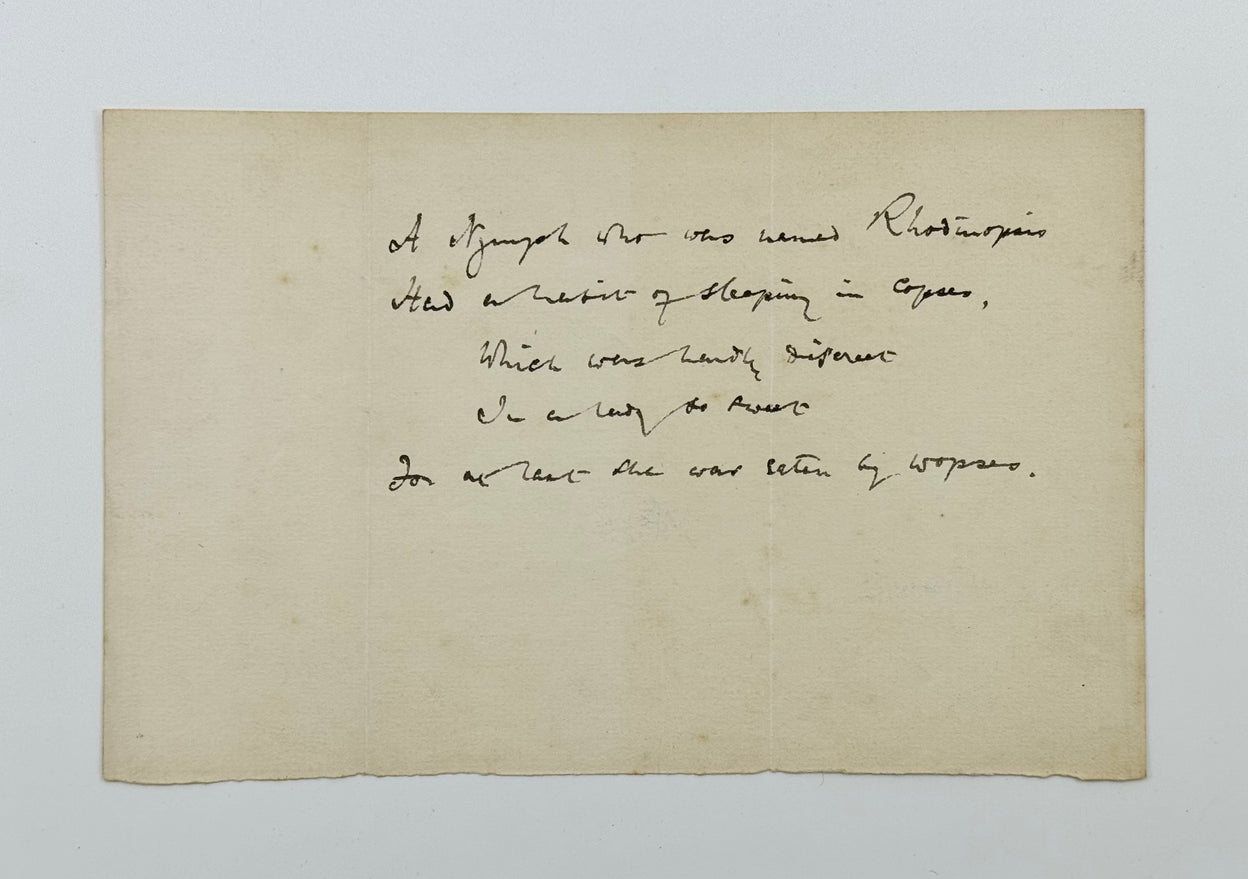 A Nymph who was named Rhodinopsis
Had a habit of sleeping in copses,
Which was hardly discreet
In a lady so sweet
For at last she was eaten by wopses.